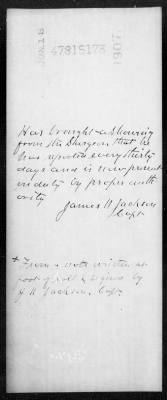 47815173
1907.
Has brought a showing
from the Surgeon that he
has reported every thirty
days and is now present
on duty by proper auth
ority
James H Jackson
Capt
* From a note written at
foot of roll & signed by
J. H. Jackson, Capt.